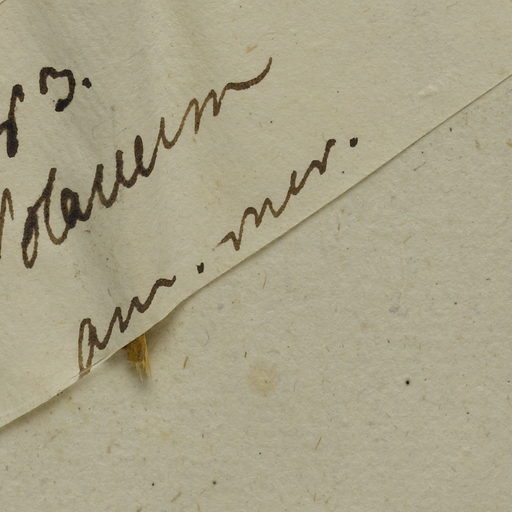 83.
Solanum
am. mer.